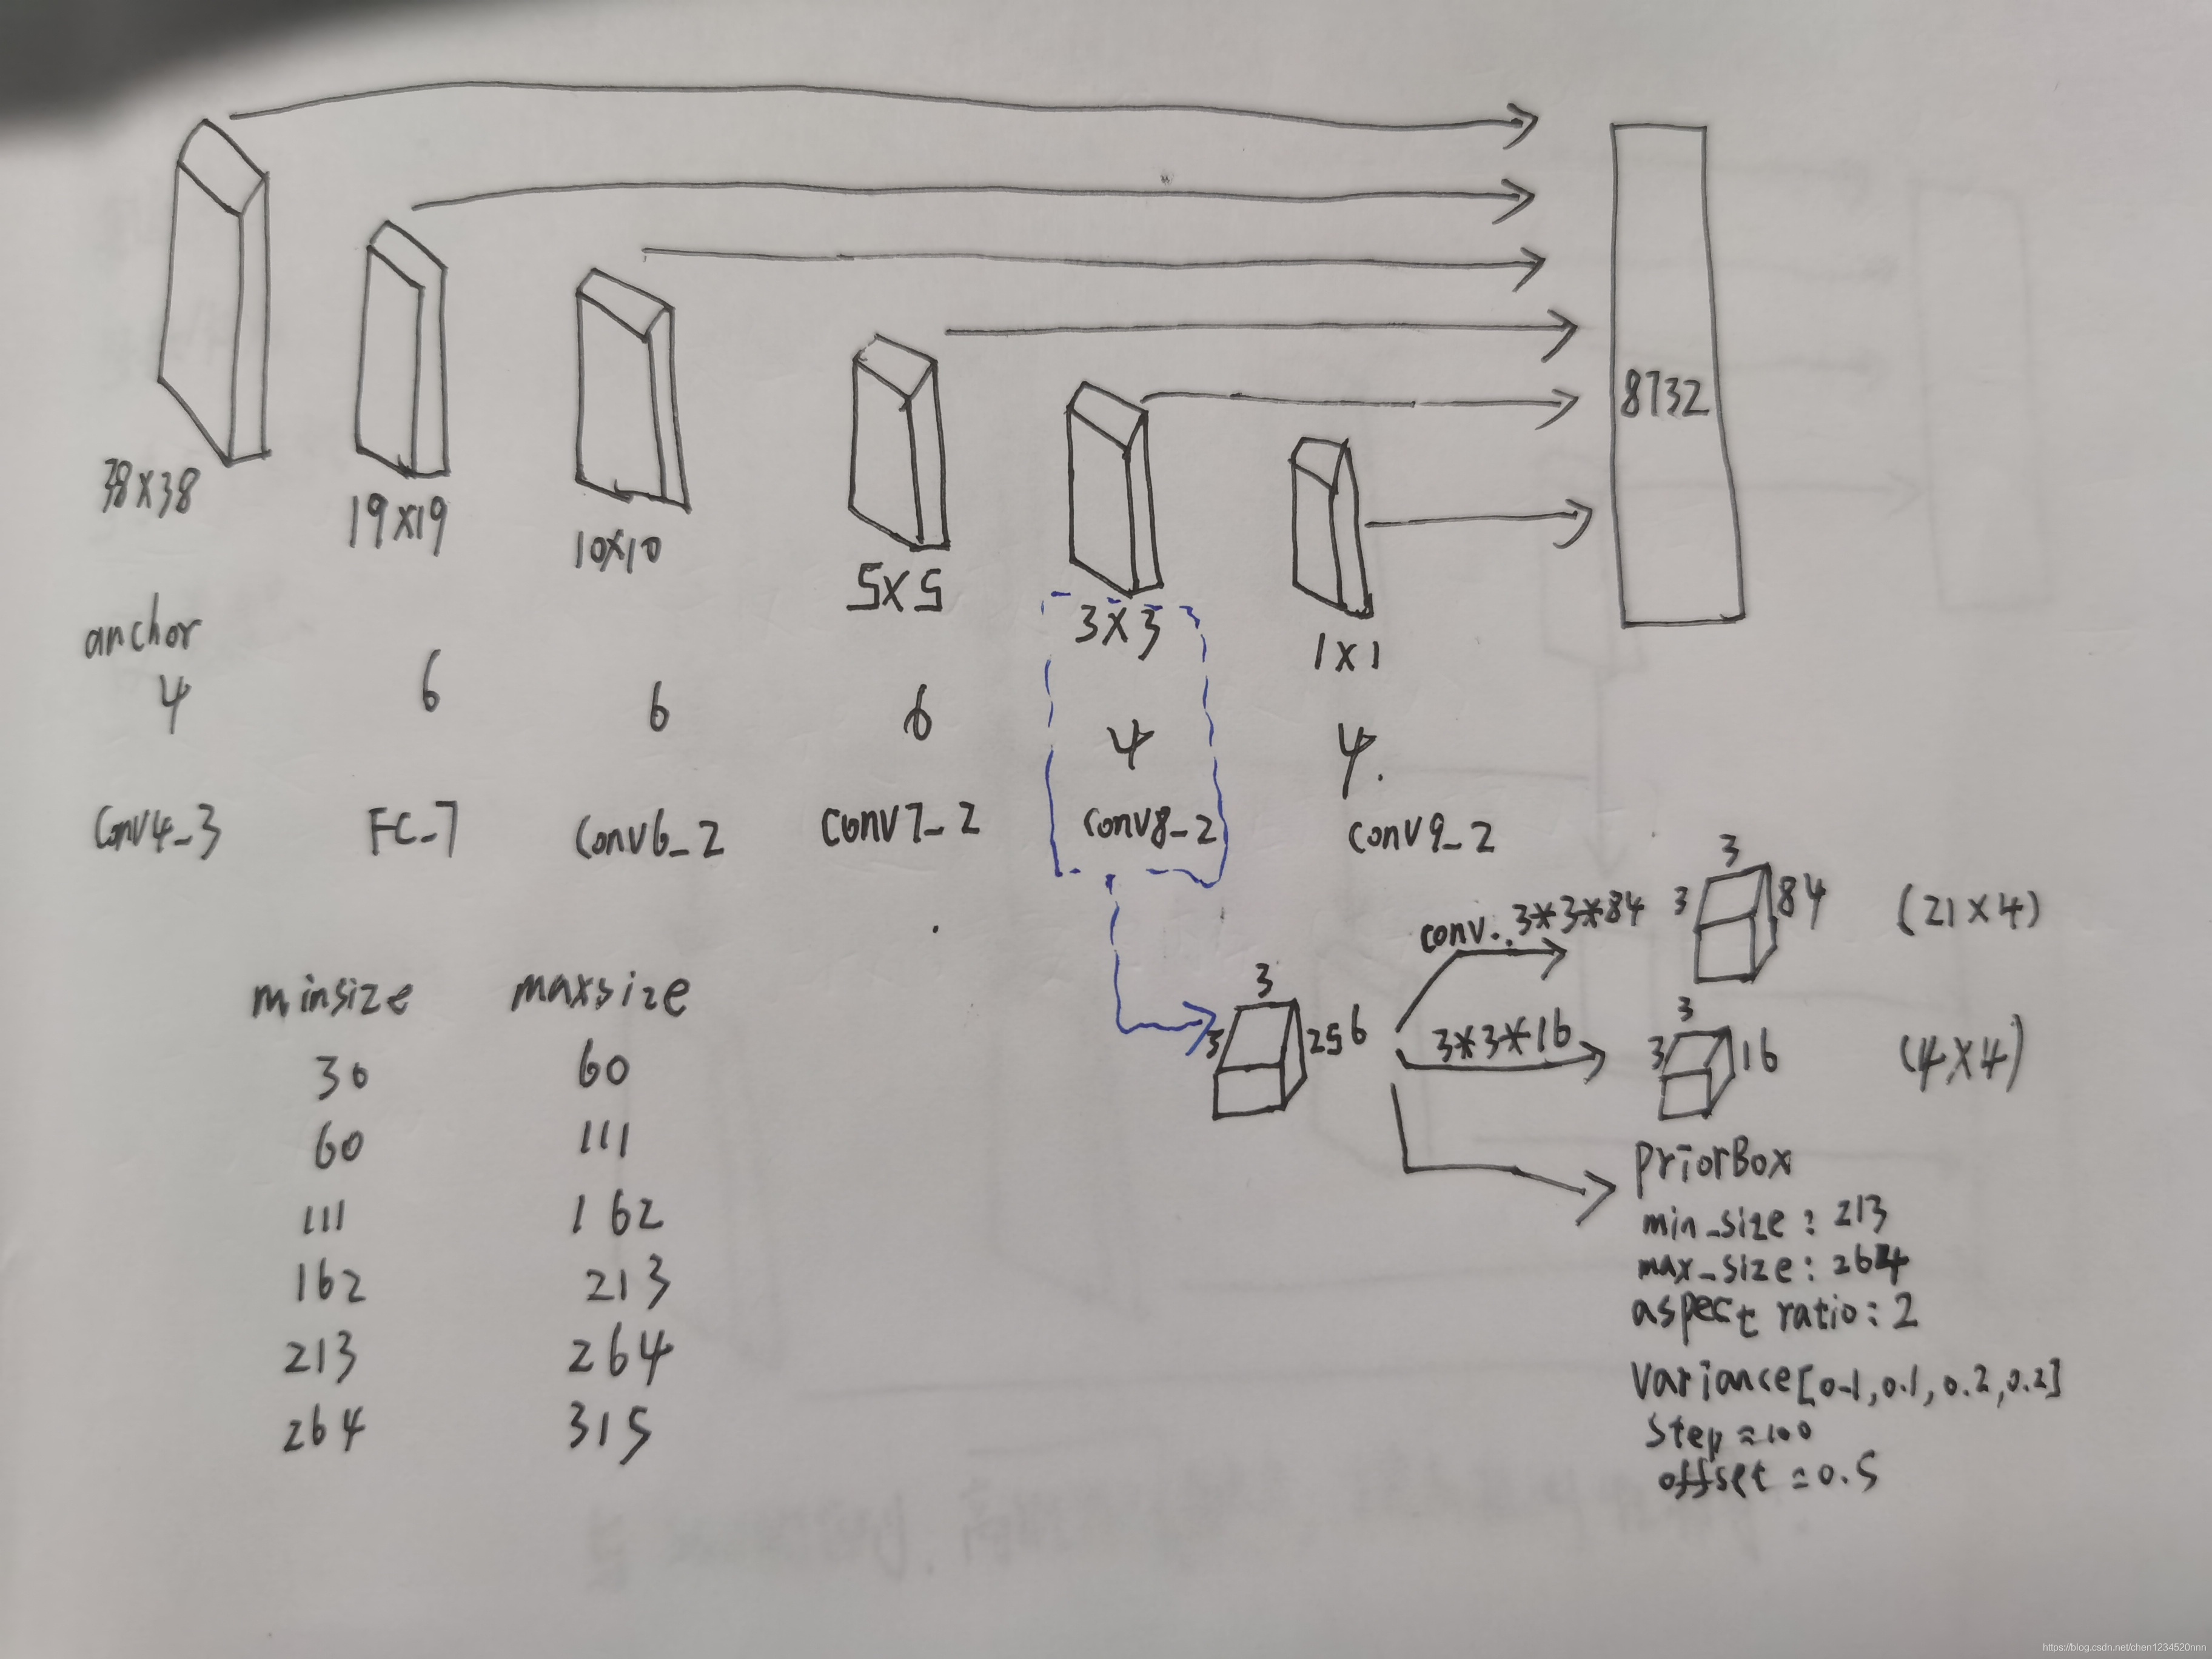 38X38
19X19
10X10
5X5
3X3
1X1
8732
anchor
4 6 6 6 4 4.
Conv4_3 FC_7 Conv6_2 Conv7_2 conv8_2 conv9_2
minsize maxsize
30 60
60 111
111 162
162 213
213 264
264 315
3
3
256
conv.. 3*3*84
3
3
84
(21X4)
3*3*16
3
3
16
(4X4)
PriorBox
min_size: 213
max_size: 264
aspect ratio: 2
Variance[0.1,0.1,0.2,0.2]
Step=100
offset=0.5
https://blog.csdn.net/chen1234520nnn